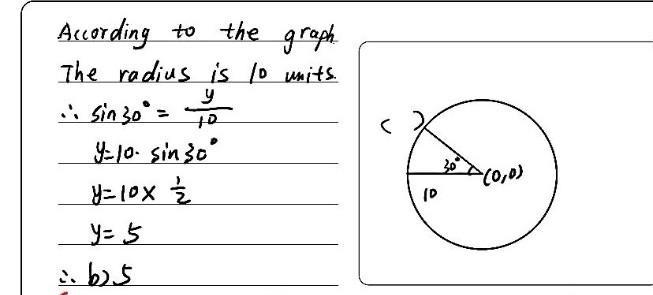 According to the graph
The radius is 10 units.
∴ sin 30° = y/10
y=10· sin 30°
y=10× 1/2
y= 5
∴ b) 5
( )
30°
(0,0)
10